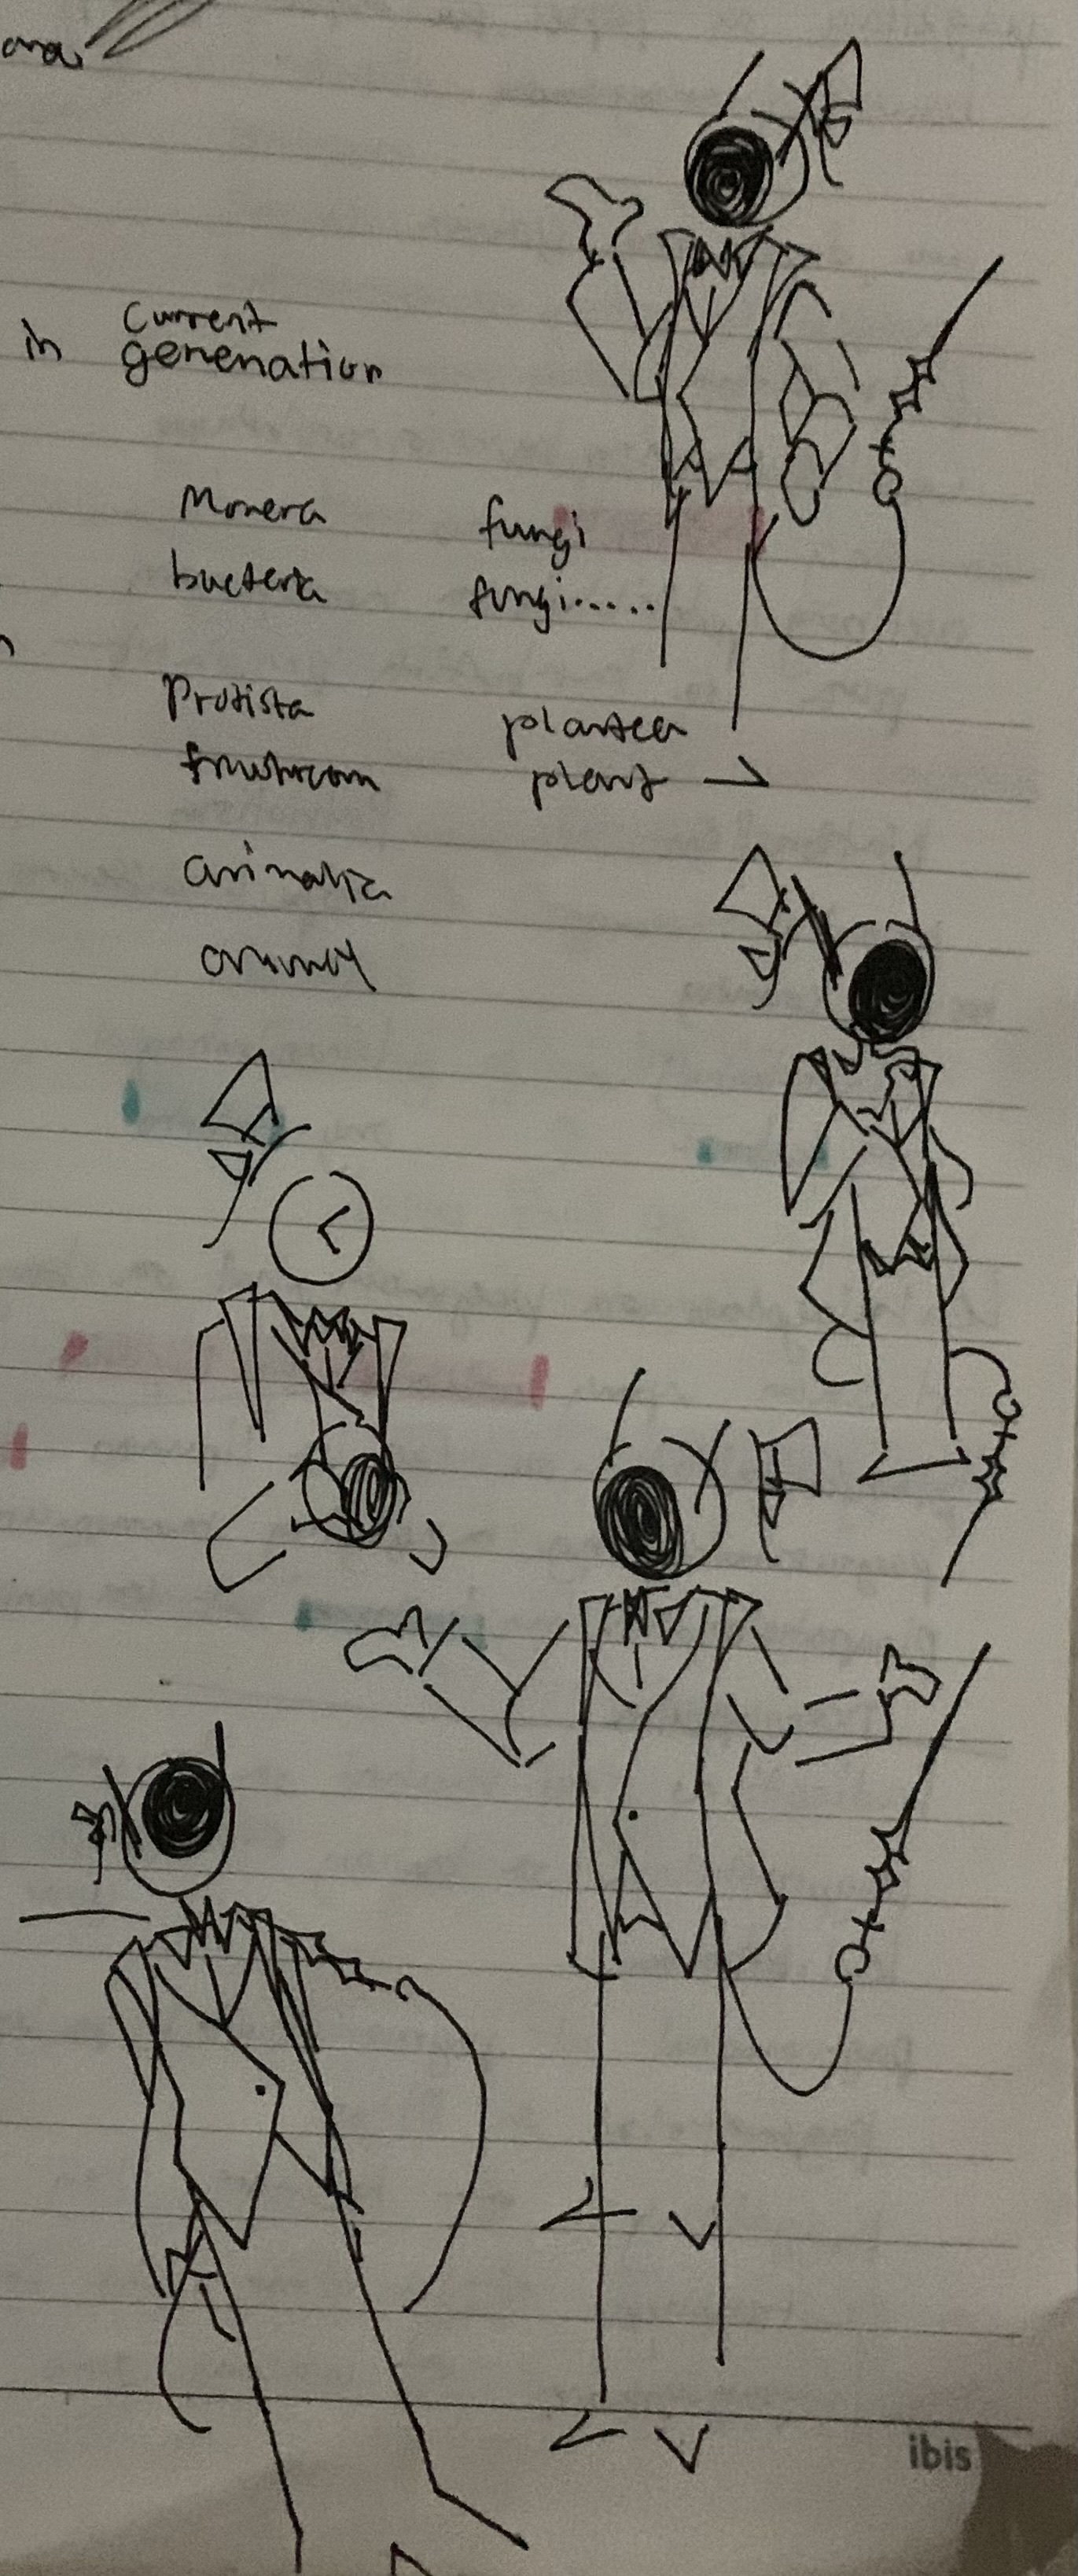 in current
generation
Monera fungi
bacteria fungi.....
Protista plantea
plant
animalia
animal
ibis